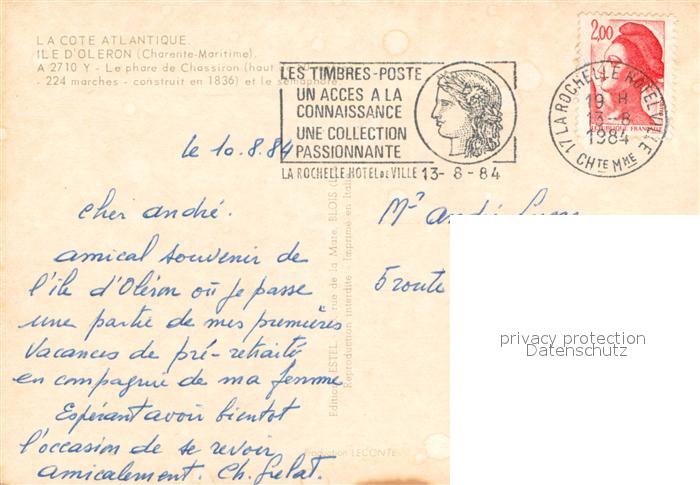 LA COTE ATLANTIQUE.
ILE D'OLERON (Charente-Maritime).
A 2710 Y - Le phare de Chassiron (haut
224 marches - construit en 1836) et le sémaphore
LES TIMBRES-POSTE
UN ACCES A LA
CONNAISSANCE
UNE COLLECTION
PASSIONNANTE
LA ROCHELLE HOTEL DE VILLE 13-8-84
2,00
REPUBLIQUE FRANÇAISE
17 LA ROCHELLE HOTEL VILLE
19 H
13-8
1984
CHTE MME
le 10.8.84
cher andré.
amical souvenir de
l'île d'Oléron où je passe
une partie de mes premières
vacances de pré-retraité
en compagnie de ma femme
Espérant avoir bientot
l'occasion de se revoir
amicalement. Ch.
Mr André
5 route
Editions ESTEL, rue de la Mare, BLOIS
Reproduction interdite - Imprimé en
Production LECONTE
privacy protection
Datenschutz